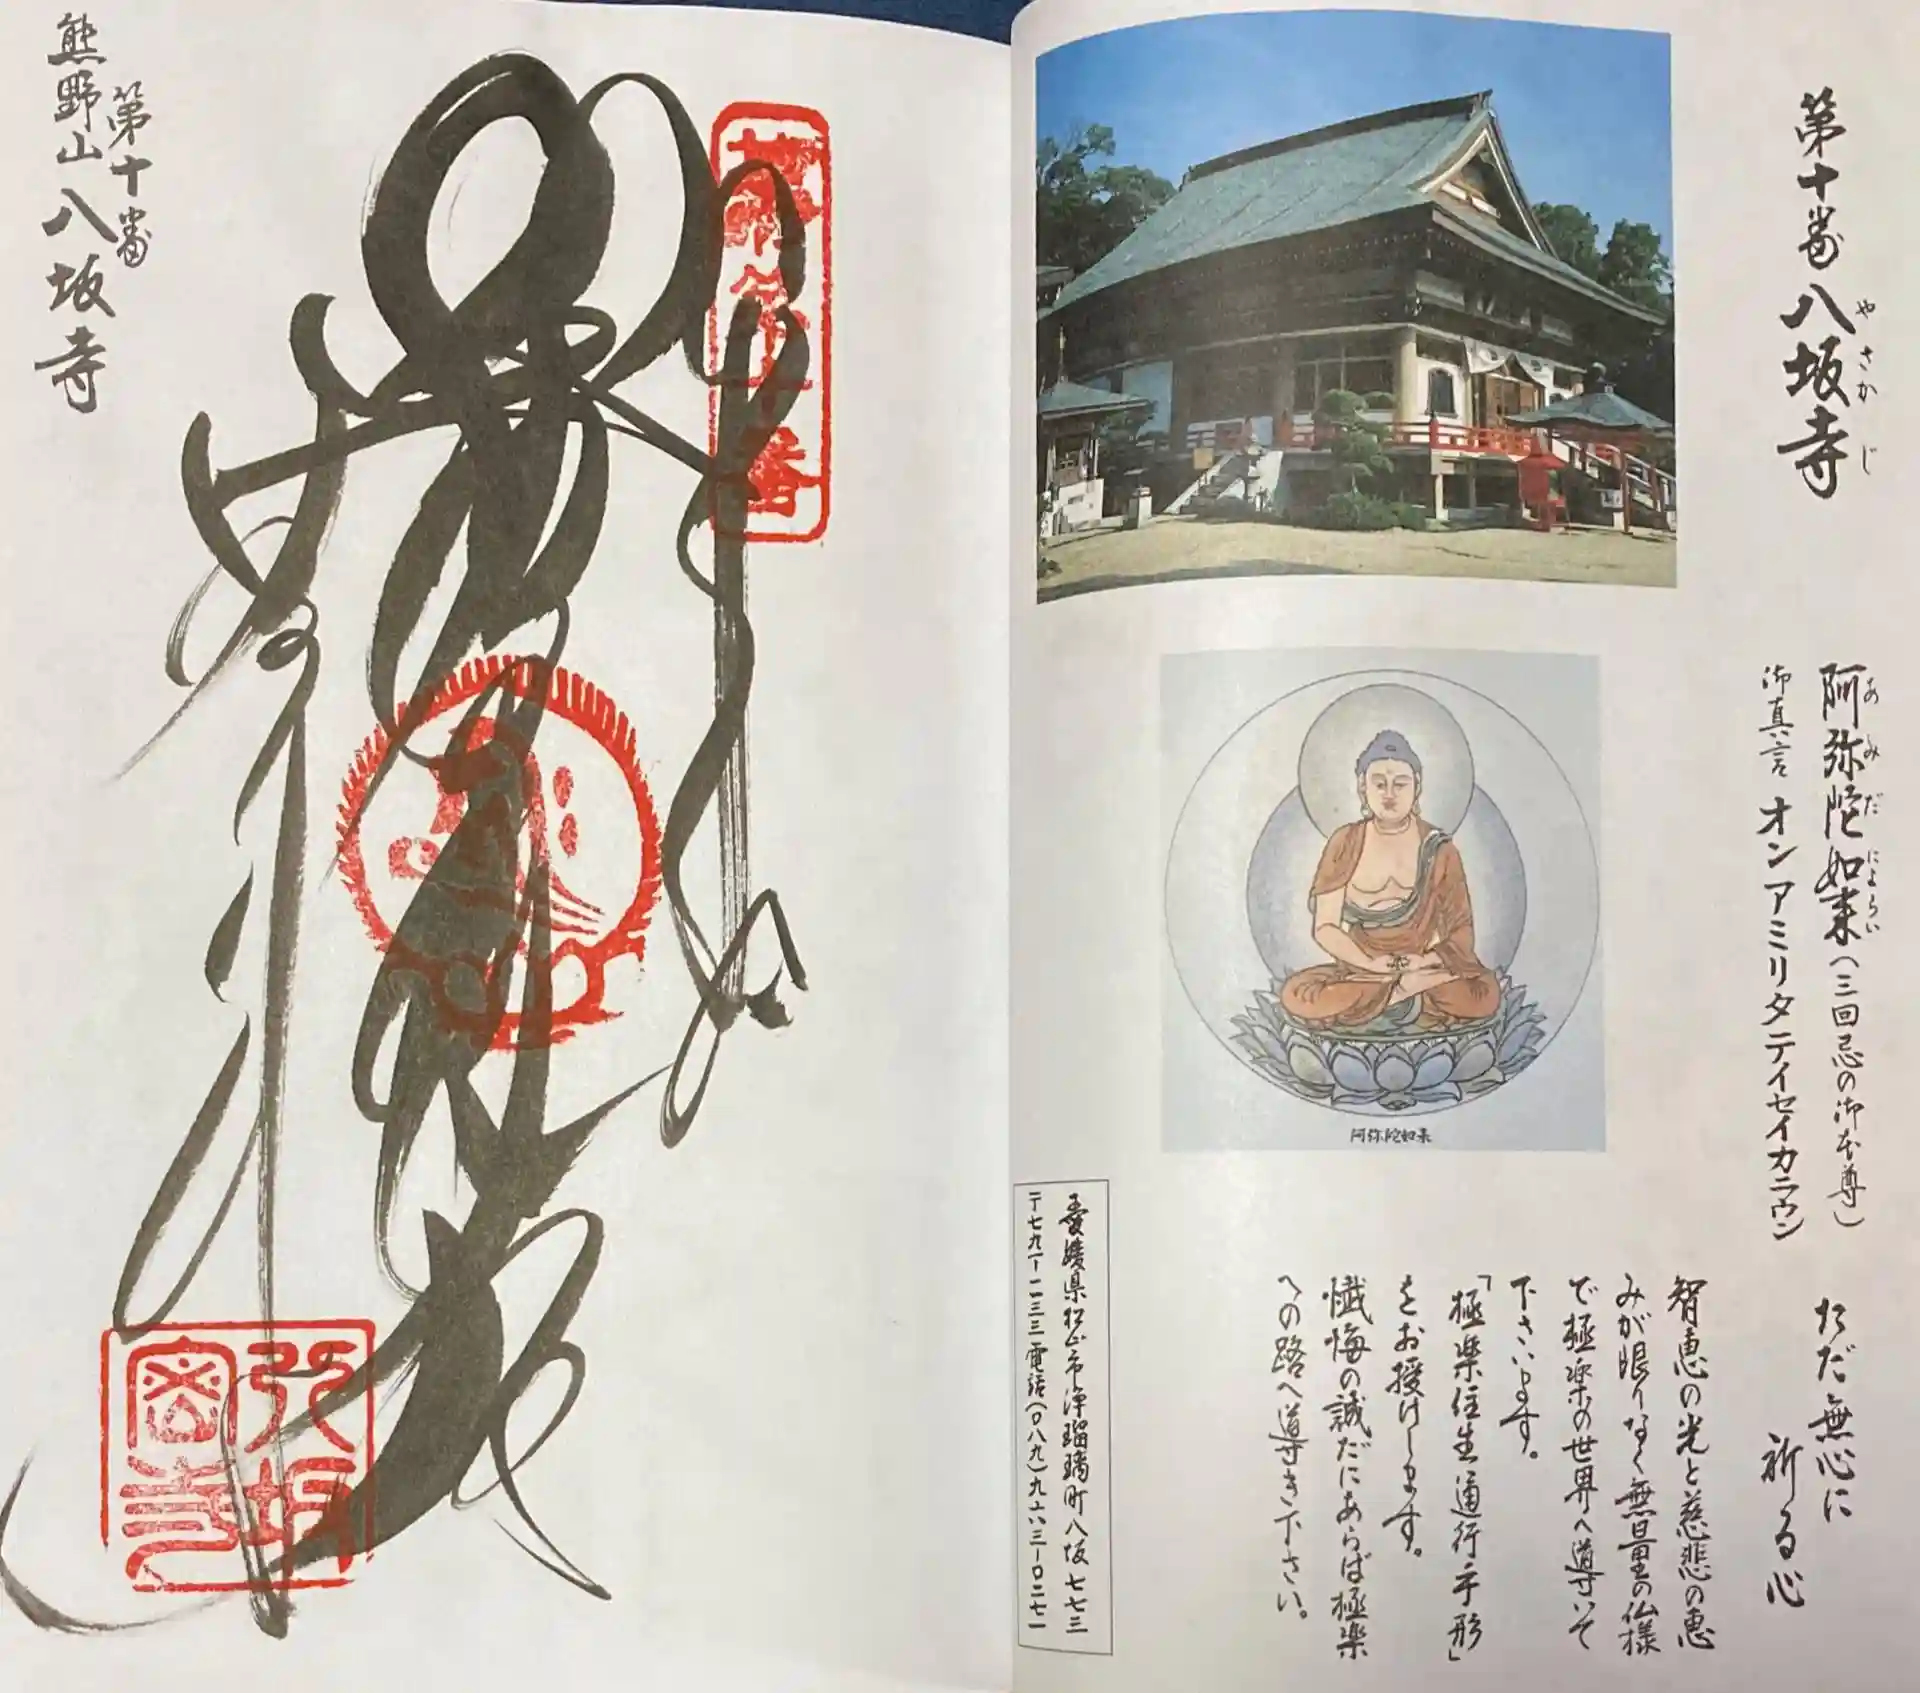 第十番 八坂寺
やさかじ
阿弥陀如来(三回忌の御本尊)
あみだにょらい
御真言 オンアミリタテイセイカラウン
ただ無心に
祈る心
智恵の光と慈悲の恵
みが限りなく無量の仏様
で極楽の世界へ導いて
下さいます。
「極楽往生通行手形」
をお授けします。
懺悔の誠だにあらば極楽
への路へ導き下さい。
阿弥陀如来
愛媛県松山市浄瑠璃町八坂七七三
〒七九一ー一一三三 電話(〇八九)九六三ー〇二七一
第十番
熊野山 八坂寺